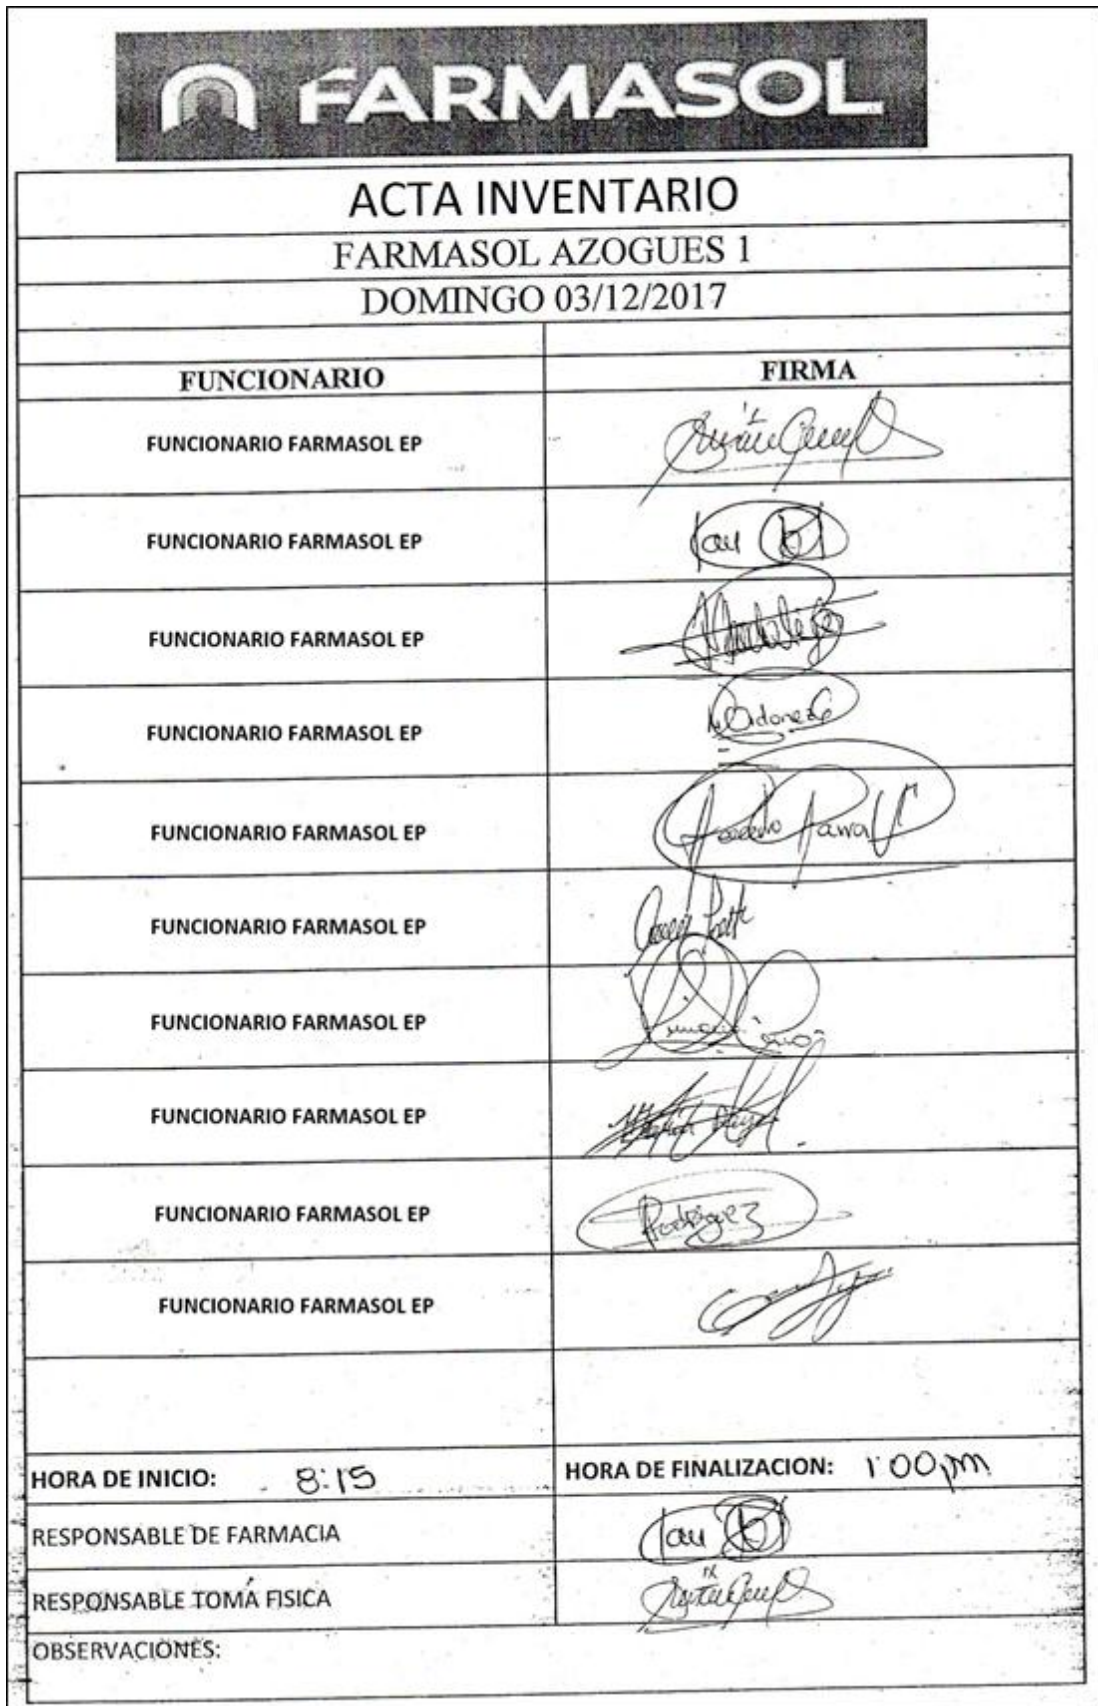 FARMASOL
ACTA INVENTARIO
FARMASOL AZOGUES 1
DOMINGO 03/12/2017
FUNCIONARIO FIRMA
FUNCIONARIO FARMASOL EP
FUNCIONARIO FARMASOL EP
FUNCIONARIO FARMASOL EP
FUNCIONARIO FARMASOL EP
FUNCIONARIO FARMASOL EP
FUNCIONARIO FARMASOL EP
FUNCIONARIO FARMASOL EP
FUNCIONARIO FARMASOL EP
FUNCIONARIO FARMASOL EP Rodriguez
FUNCIONARIO FARMASOL EP
HORA DE INICIO: 8:15 HORA DE FINALIZACION: 1:00 pm
RESPONSABLE DE FARMACIA
RESPONSABLE TOMA FISICA
OBSERVACIONES: